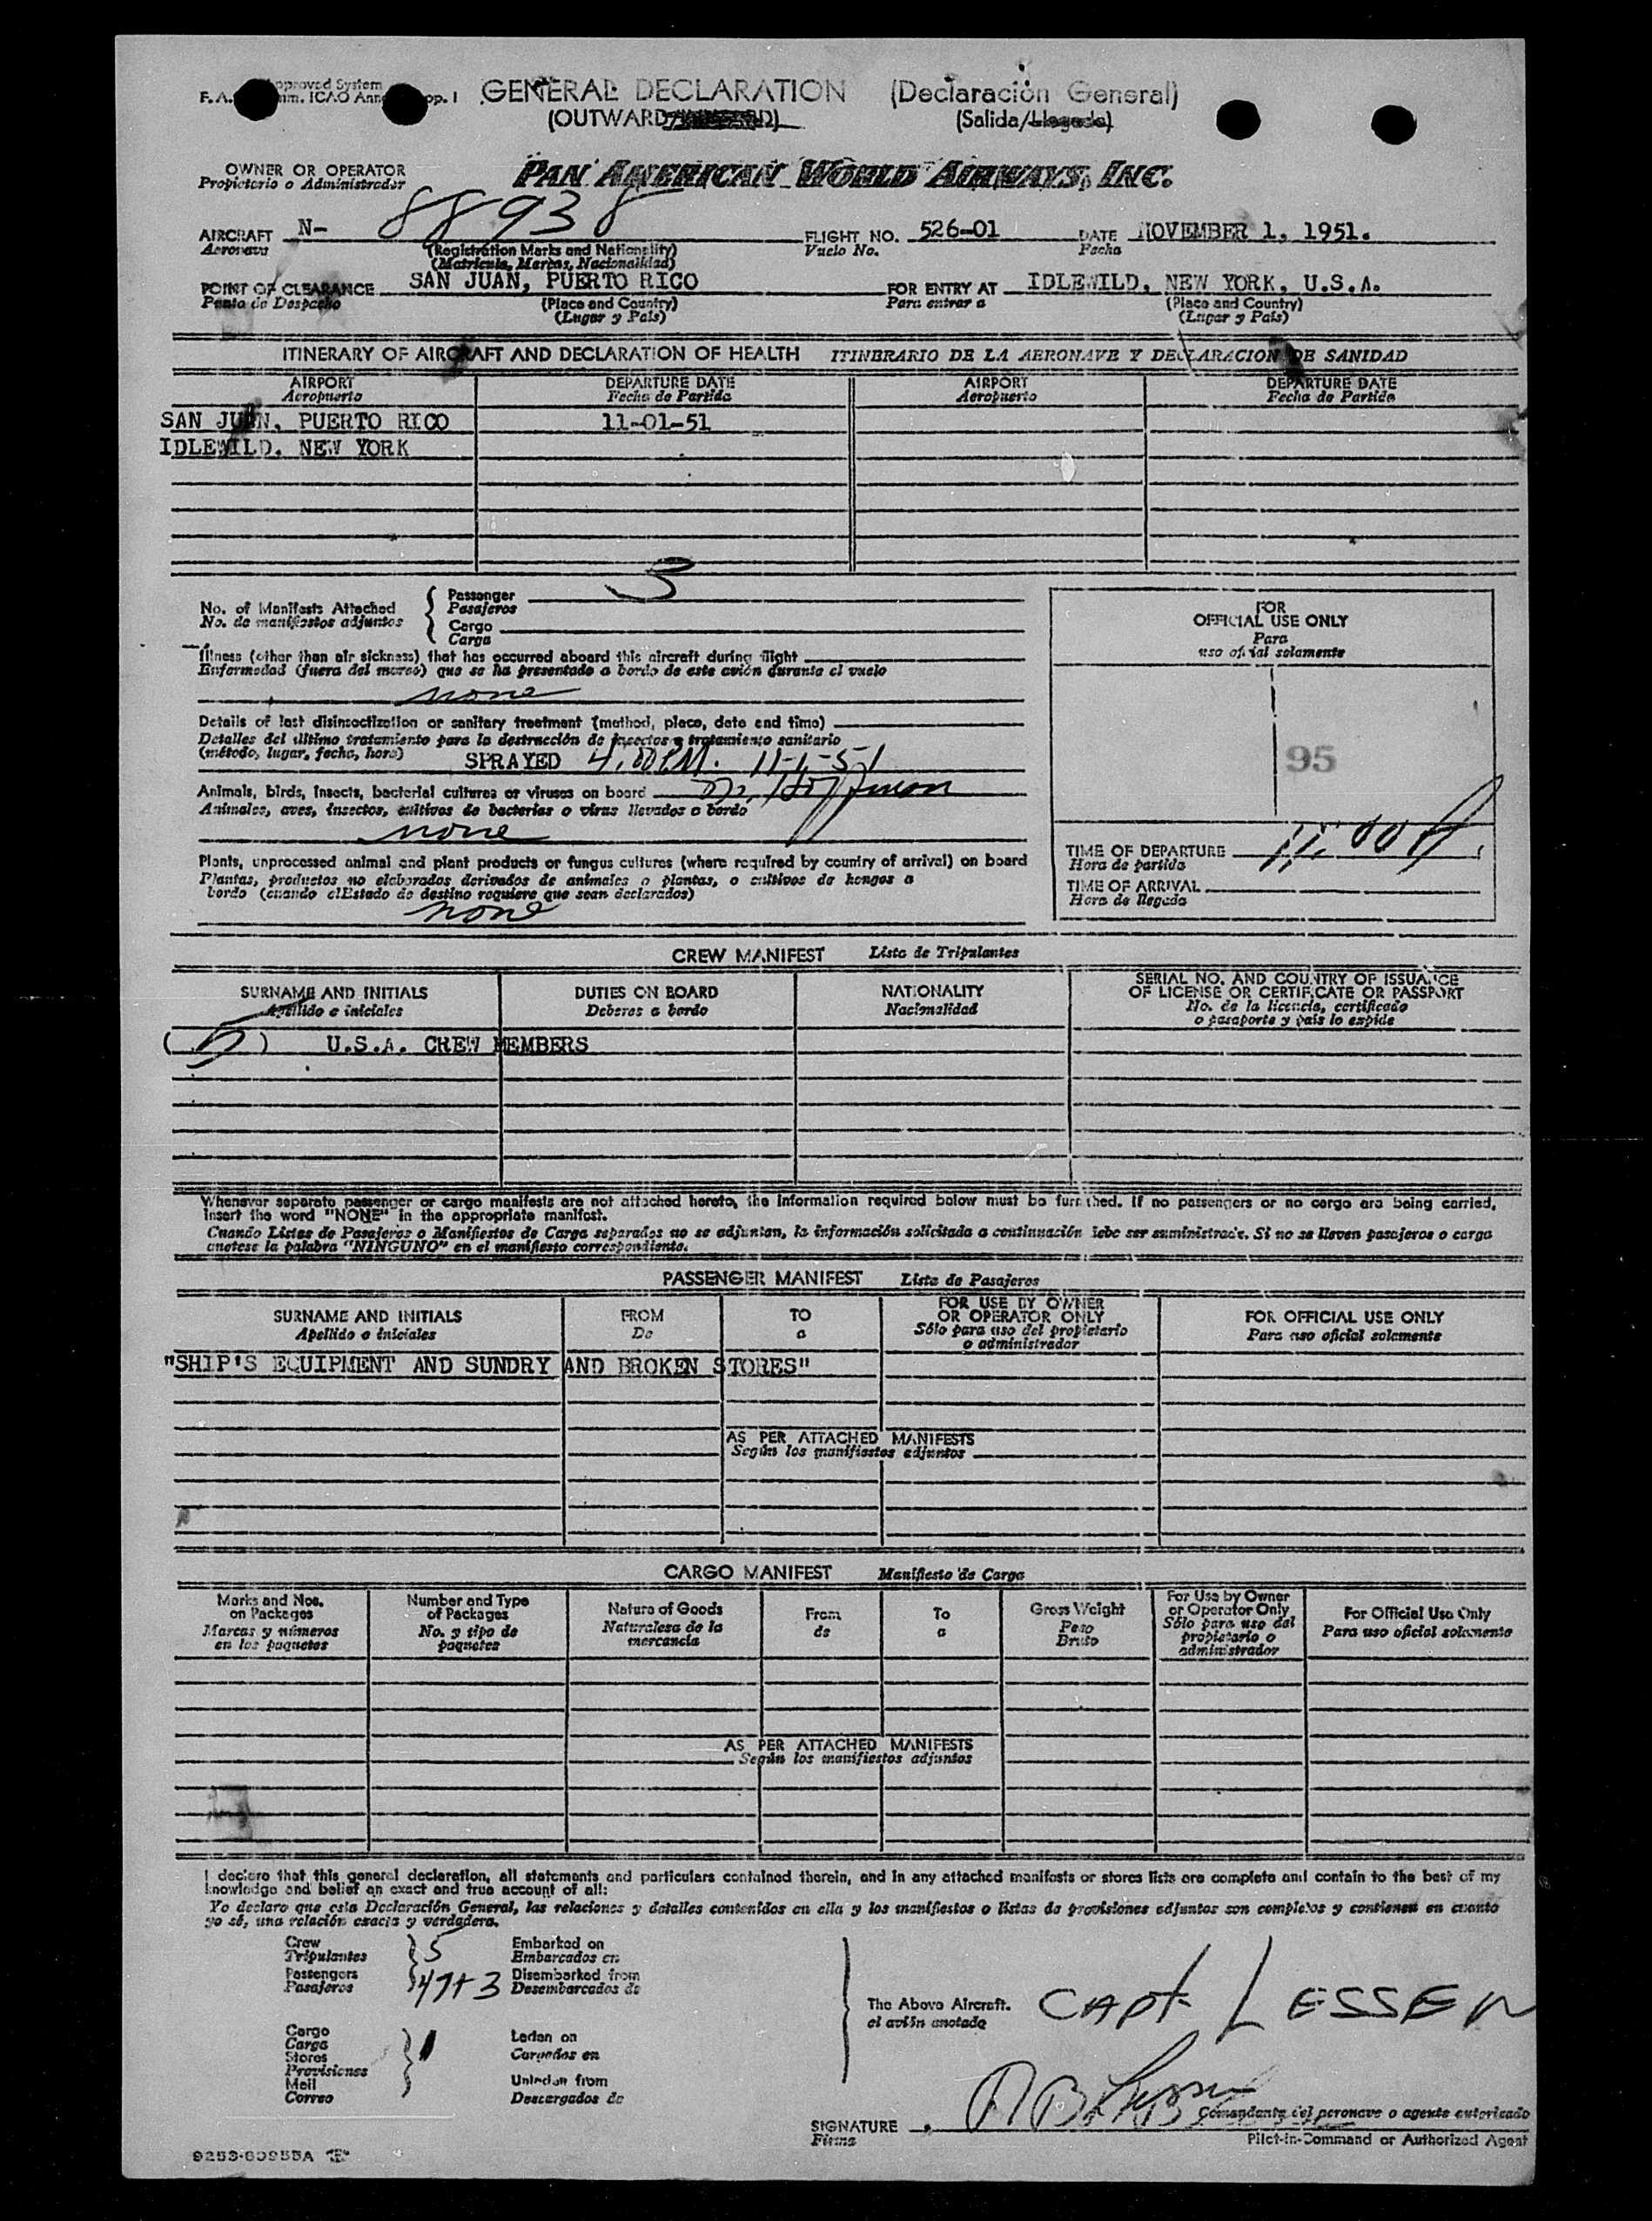 GENERAL DECLARATION (Declaración General)
(OUTWARD (Salida/Llegada)
OWNER OR OPERATOR PAN AMERICAN WORLD AIRWAYS, INC.
Propietario o Administrador
AIRCRAFT N- 88938 FLIGHT NO. 526-01 DATE NOVEMBER 1, 1951.
Aeronave (Registration Marks and Nationality) Vuelo No. Fecha
(Matricula, Marcas, Nacionalidad)
POINT OF CLEARANCE SAN JUAN, PUERTO RICO FOR ENTRY AT IDLEWILD, NEW YORK, U.S.A.
Punto de Despacho (Place and Country) Para entrar a (Place and Country)
(Lugar y País) (Lugar y País)
ITINERARY OF AIRCRAFT AND DECLARATION OF HEALTH ITINERARIO DE LA AERONAVE Y DECLARACION DE SANIDAD
AIRPORT DEPARTURE DATE AIRPORT DEPARTURE DATE
Aeropuerto Fecha de Partida Aeropuerto Fecha de Partida
SAN JUAN, PUERTO RICO 11-01-51
IDLEWILD, NEW YORK
No. of Manifests Attached
No. de manifiestos adjuntos
Passenger 3
Pasajeros
Cargo
Carga
Illness (other than air sickness) that has occurred aboard this aircraft during flight
Enfermedad (fuera del mareo) que se ha presentado a bordo de este avión durante el vuelo
none
Details of last disinsectization or sanitary treatment (method, place, date and time)
Detalles del ultimo tratamiento para la destrucción de insectos o tratamiento sanitario
(método, lugar, fecha, hora) SPRAYED 4:00 PM. 11-1-51
Animals, birds, insects, bacterial cultures or viruses on board
Animales, aves, insectos, cultivos de bacterias o virus llevados a bordo
none
Plants, unprocessed animal and plant products or fungus cultures (where required by country of arrival) on board
Plantas, productos no elaborados derivados de animales o plantas, o cultivos de hongos a
bordo (cuando el Estado de destino requiere que sean declarados)
none
FOR
OFFICIAL USE ONLY
Para
uso oficial solamente
95
TIME OF DEPARTURE 11:00
Hora de partida
TIME OF ARRIVAL
Hora de llegada
CREW MANIFEST Lista de Tripulantes
SURNAME AND INITIALS DUTIES ON BOARD NATIONALITY SERIAL NO. AND COUNTRY OF ISSUANCE
OF LICENSE OR CERTIFICATE OR PASSPORT
Apellido e iniciales Deberes a bordo Nacionalidad No. de la licencia, certificado
o pasaporte y pais lo expide
( 5 ) U.S.A. CREW MEMBERS
Whenever separate passenger or cargo manifests are not attached hereto, the information required below must be furnished. If no passengers or no cargo are being carried,
insert the word "NONE" in the appropriate manifest.
Cuando Listas de Pasajeros o Manifiestos de Carga separados no se adjuntan, la información solicitada a continuación debe ser suministrada. Si no se lleven pasajeros o carga
anotese la palabra "NINGUNO" en el manifiesto correspondiente.
PASSENGER MANIFEST Lista de Pasajeros
SURNAME AND INITIALS FROM TO FOR USE BY OWNER
OR OPERATOR ONLY FOR OFFICIAL USE ONLY
Apellido e iniciales De a Sólo para uso del propietario
o administrador Para uso oficial solamente
"SHIP'S EQUIPMENT AND SUNDRY AND BROKEN STORES"
AS PER ATTACHED MANIFESTS
Según los manifiestos adjuntos
CARGO MANIFEST Manifiesto de Carga
Marks and Nos.
on Packages
Marcas y números
en los paquetes
Number and Type
of Packages
No. y tipo de
paquetes
Nature of Goods
Naturalesa de la
mercancia
From
de
To
a
Gross Weight
Peso
Bruto
For Use by Owner
or Operator Only
Sólo para uso del
propietario o
administrador
For Official Use Only
Para uso oficial solamente
AS PER ATTACHED MANIFESTS
Según los manifiestos adjuntos
I declare that this general declaration, all statements and particulars contained therein, and in any attached manifests or stores lists are complete and contain to the best of my
knowledge and belief an exact and true account of all:
Yo declaro que esta Declaración General, las relaciones y detalles contenidos en ella y los manifiestos o listas de provisiones adjuntos son completos y contienen en cuanto
yo sé, una relación exacta y verdadera.
Crew 5 Embarked on
Tripulantes Embarcados en
Passengers 47+3 Disembarked from
Pasajeros Desembarcados de
Cargo
Carga
Stores
Provisiones
Mail
Correo
Laden on
Cargados en
Unladen from
Descargados de
The Above Aircraft.
el avión anotado
CAPT. LESSEN
SIGNATURE
Firma
Comandante del aeronave o agente autorizado
Pilot-in-Command or Authorized Agent